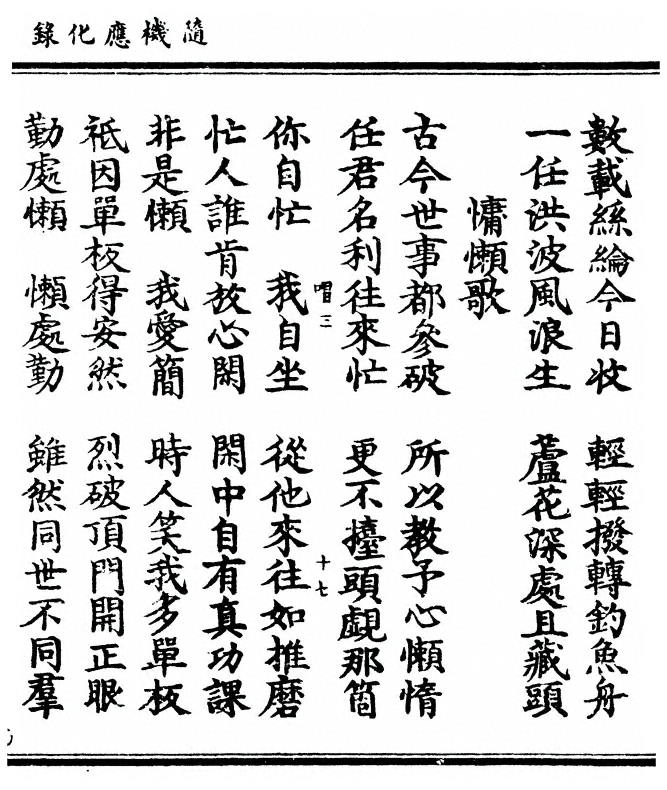 隨機應化錄
數載絲綸今日收　輕輕撥轉釣魚舟
一任洪波風浪生　蘆花深處且藏頭
慵懶歌
古今世事都參破　所以教予心懶惰
任君名利往來忙　更不擡頭覷那箇
唱三　十七
你自忙　我自坐　從他來往如推磨
忙人誰肯放心閑　閑中自有真功課
非是懶　我愛簡　時人笑我多單板
祇因單板得安然　烈破頂門開正眼
勤處懶　懶處勤　雖然同世不同羣